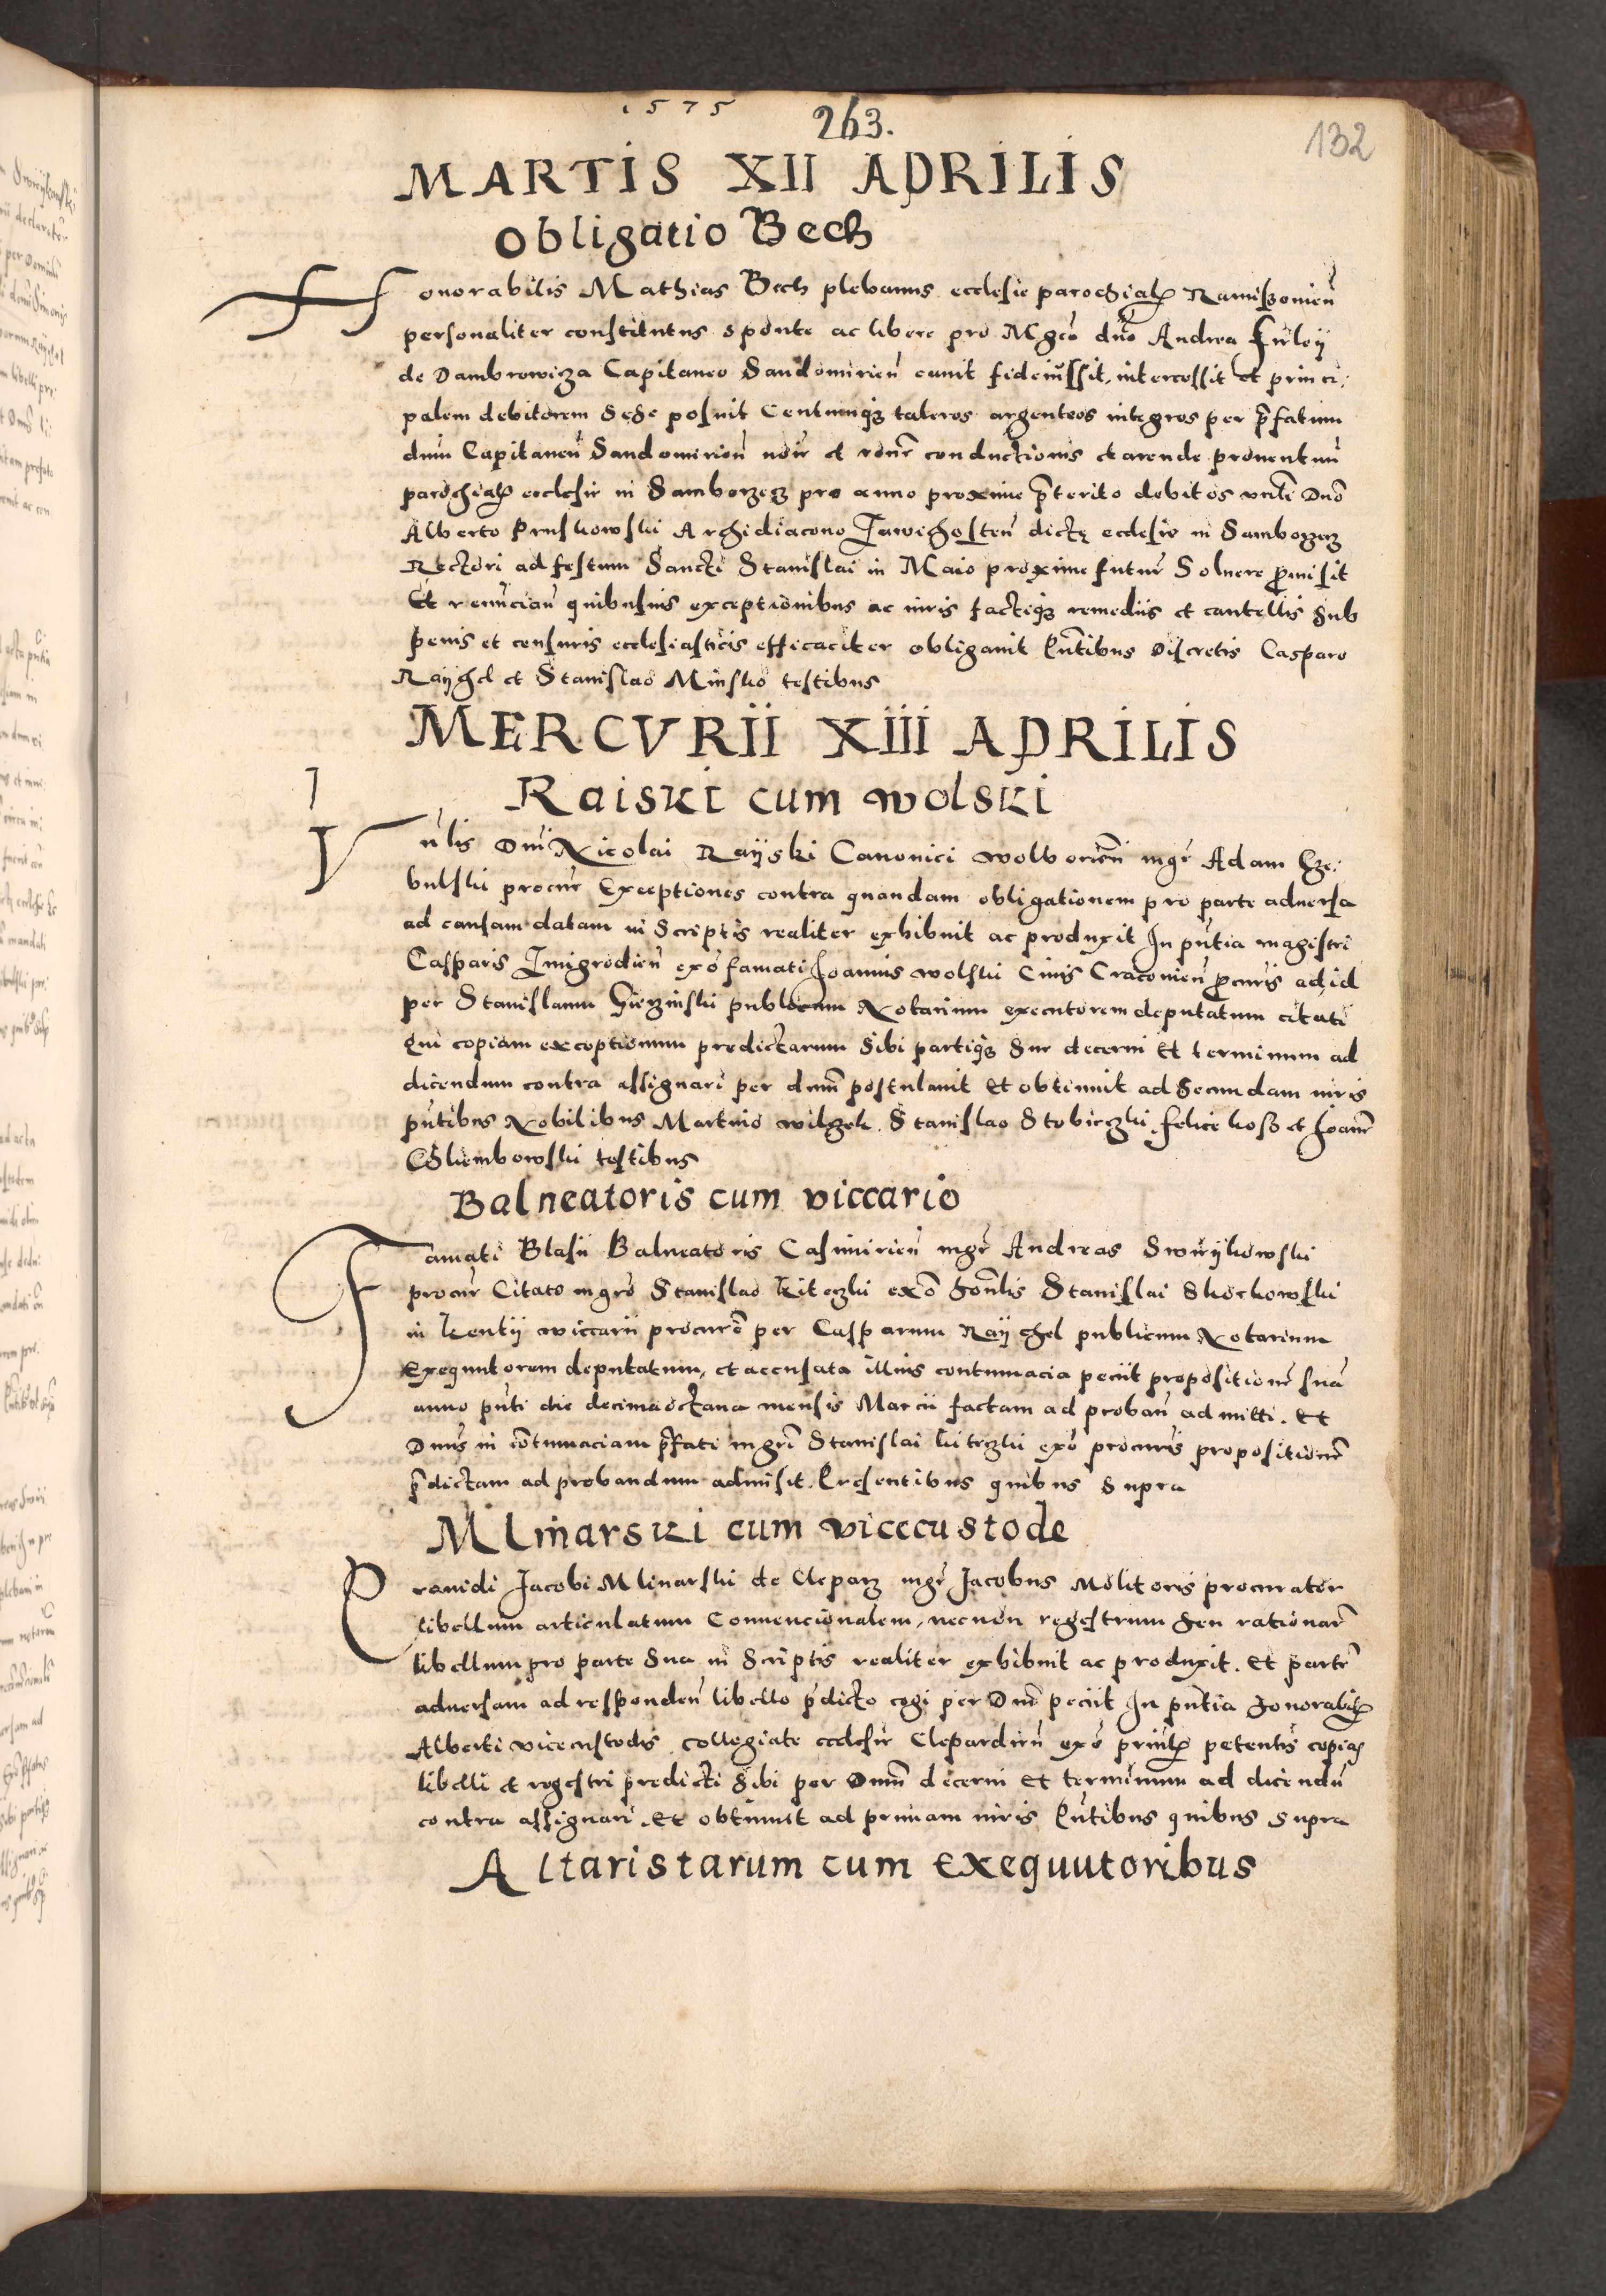 1575
263.
132
MARTIS XII APRILIS
Obligatio Bech
Honorabilis Mathias Bech plebanus ecclesie parochial Raniszowien
personaliter constitutus sponte ac libere pro Mgco dno Andrea Firleÿ
de Dambrowicza Capitaneo Sandomirien cauit fideiussit, intercessit et princi:
palem debitorem sese posuit Centumqz taleros argenteos integros per pfatum
dnm Capitaneu Sandomirien noie et rone conductionis et arende prouentuu
parochial ecclesie in Samborzecz pro anno proxime pterito debitos vnli Dno
Alberto Pruskowski Archidiacono Zawichosten dictę ecclesie in Samborzecz
Rectori ad festum Sancti Stanislai in Maio proxime futur Soluere pmisit
Et renuncian quibusuis exceptionibus ac iuris factiqz remediis et cautellis sub
penis et censuris ecclesiasticis efficaciter obligauit Pntibus Discretis Casparo
Raÿchel et Stanislao Minsko testibus
MERCVRII XIII APRILIS
Raiski cum wolski
Vnlis Dni Nicolai Raÿski Canonici wolborien mgr Adam
procur Exceptiones contra quandam obligationem pro parte aduersa
ad causam datam in Scriptis realiter exhibuit ac produxit In pntia magistri
Casparis Zmigrodien exo famati Joannis wolski Ciuis Cracouien pcuris ad id
per Stanislaum publicum Notarium executorem deputatum citati
Qui copiam exceptionum predictarum sibi partiqz sue decerni Et terminum ad
dicendum contra assignari per dnm postulauit Et obtinuit ad Secundam iuris
pntibus Nobilibus Martino wilczek, Stanislao Stobieczki, felice kosz et Joanne
testibus
Balneatoris cum viccario
Famati Blasii Balneatoris Casimirien mgr Andreas Swirÿkowski
procur Citato mgro Stanislao Kiteczki exo honlis Stanislai Skorkowski
in Kentÿ wiccarii procure per Casparum Raÿchel publicum Notarium
Exequutorem deputatum, et accusata illius contumacia peciit propositione sua
anno pnti die decimaoctaua mensis Marcii factam ad proban admitti. Et
Dnus in contumaciam pfati mgri Stanislai kiteczki exo procuris propositione
pdictam ad probandum admisit. Presentibus quibus supra
Mlinarski cum vicecustode
Prouidi Jacobi Mlinarski de Cleparz mgr Jacobus Molitoris procurator
libellum articulatum Conuencionalem, necnon regestrum seu rationar
libellum pro parte sua in Scriptis realiter exhibuit ac produxit. Et parte
aduersam ad responden libello pdicto cogi per Dnm peciit In pntia honorabil
Alberti vicecustodis collegiate ecclesie Clepardien exo principal petentis copia
libelli et regestri predicti sibi per Dnm decerni Et terminum ad dicendu
contra assignari. Et obtinuit ad primam iuris Pntibus quibus supra
Altaristarum cum Exequutoribus